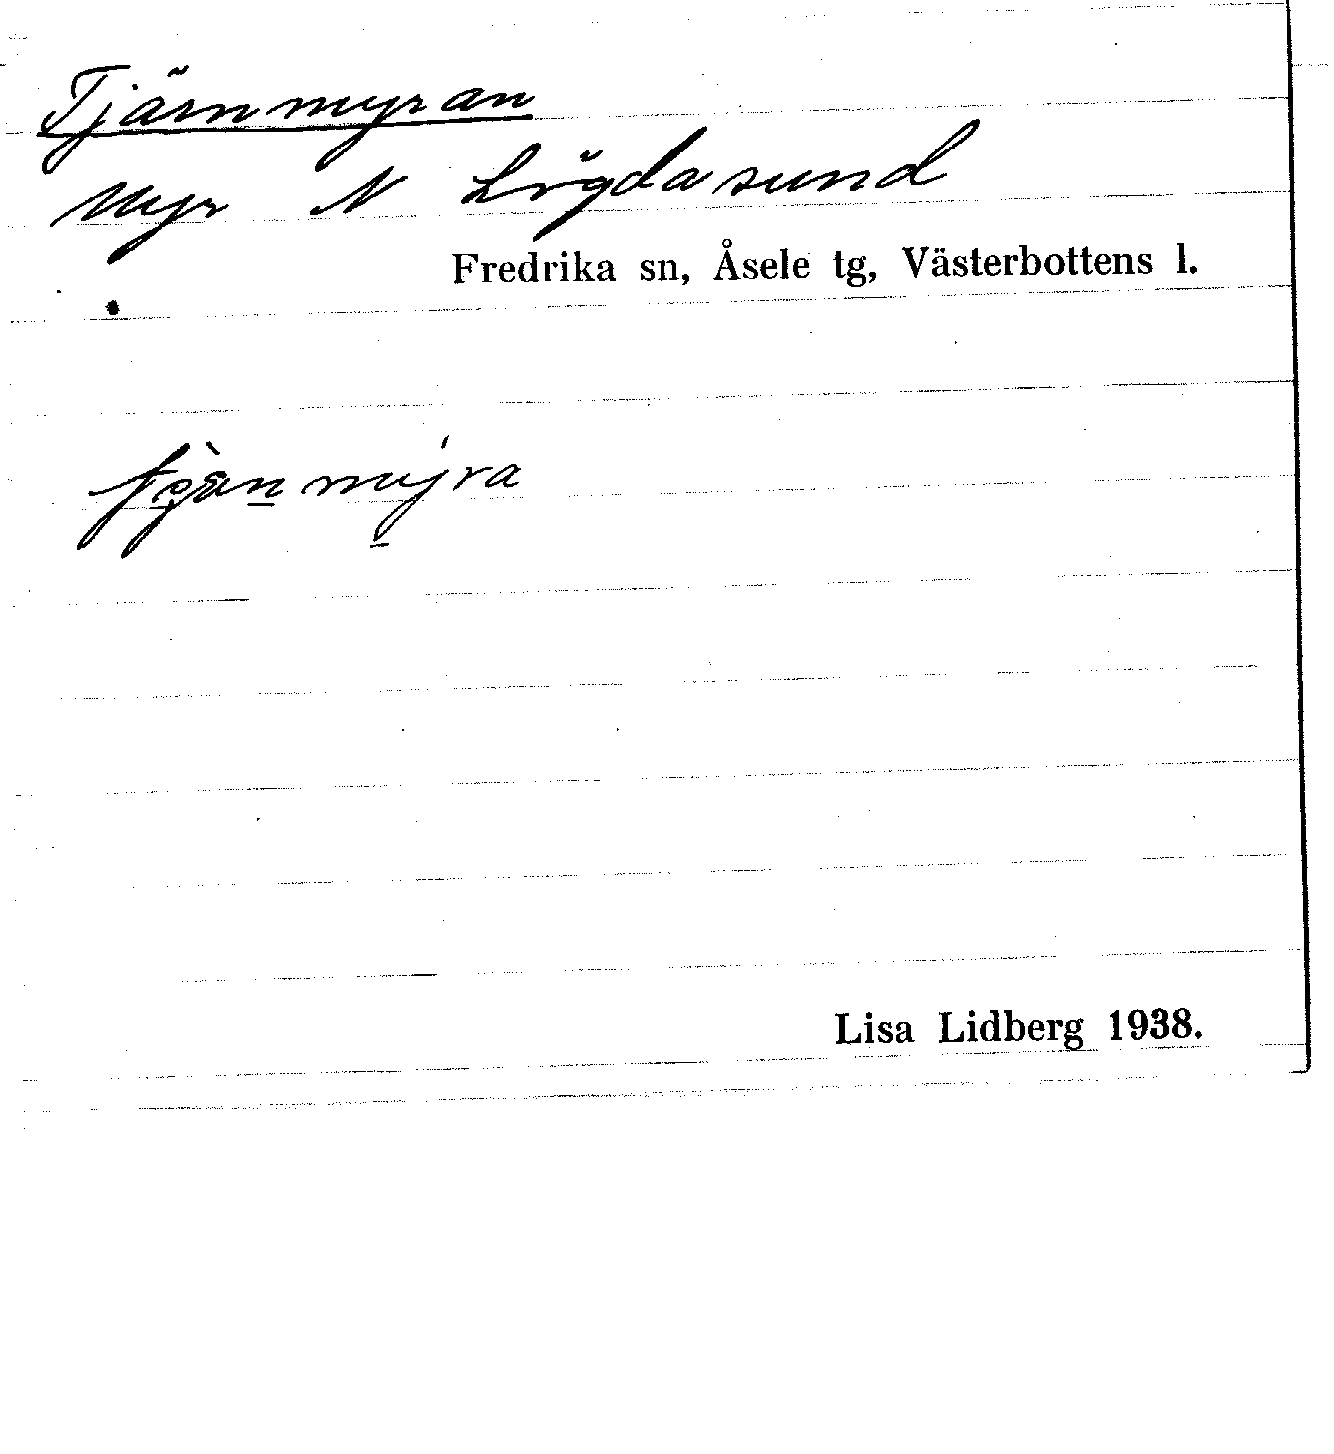 Tjärnmyran
Myr N Lögdasund
Fredrika sn, Åsele tg, Västerbottens l.
Lisa Lidberg 1938.